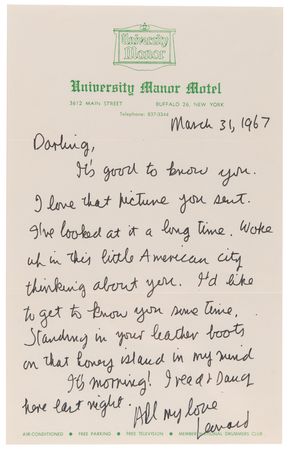 University
Manor
University Manor Motel
3612 MAIN STREET BUFFALO 26, NEW YORK
Telephone: 837-3344
March 31, 1967
Darling,
It's good to know you.
I love that picture you sent.
I've looked at it a long time. Woke
up in this little American city
thinking about you. I'd like
to get to know you some time,
Standing in your leather boots
on that honey island in my mind
It's morning! I read & sang
here last night.
All my love
Leonard
AIR-CONDITIONED • FREE PARKING • FREE TELEVISION • MEMBER NATIONAL DRUMMERS CLUB